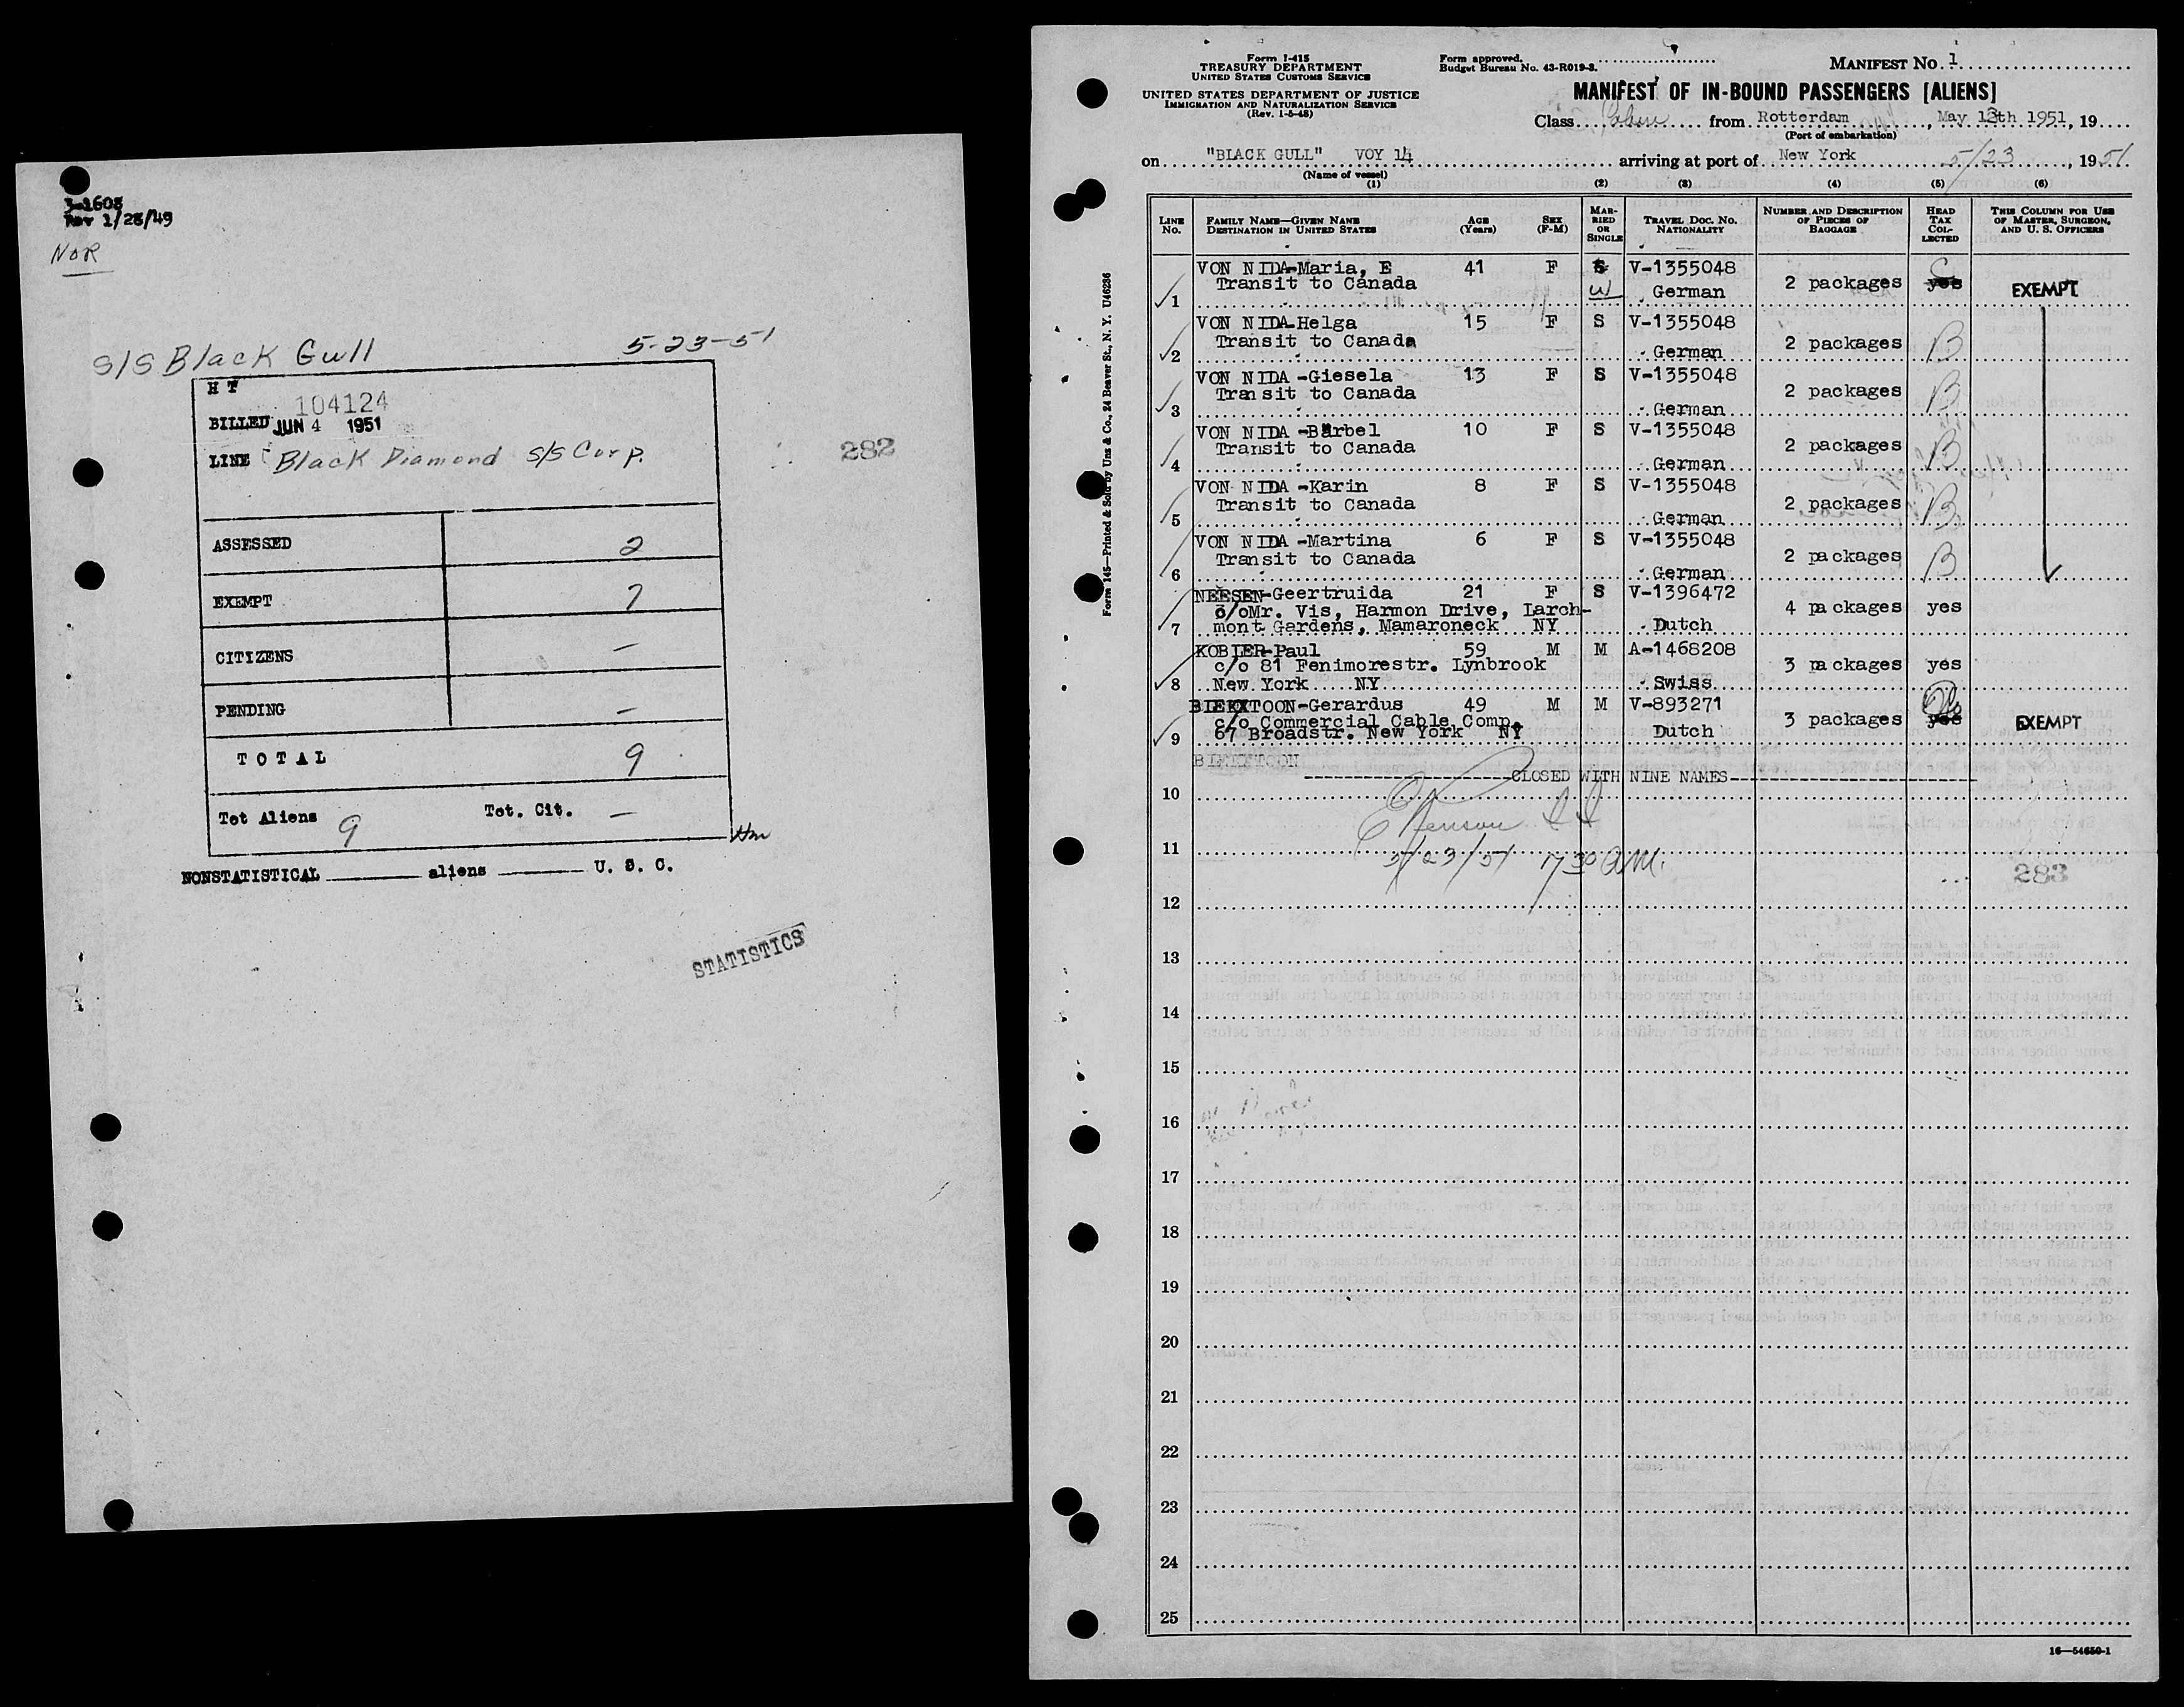 3-1608
Rev 1/28/49
NOR
S/S Black Gull 5-23-51
H T
104124
BILLED JUN 4 1951
LINE Black Diamond S/S Corp.
282
ASSESSED 2
EXEMPT 7
CITIZENS —
PENDING —
TOTAL 9
Tot Aliens 9 Tot. Cit. —
Hm
NONSTATISTICAL aliens U. S. C.
STATISTICS
Form I-415
TREASURY DEPARTMENT
UNITED STATES CUSTOMS SERVICE
UNITED STATES DEPARTMENT OF JUSTICE
IMMIGRATION AND NATURALIZATION SERVICE
(Rev. 1-5-48)
Form approved.
Budget Bureau No. 43-R019-3.
MANIFEST No. 1
MANIFEST OF IN-BOUND PASSENGERS [ALIENS]
Class from Rotterdam, May 13th 1951, 19
(Port of embarkation)
on "BLACK GULL" VOY 14 arriving at port of New York 5/23, 1951
(Name of vessel)
(1) (2) (3) (4) (5) (6)
LINE No. FAMILY NAME—GIVEN NAME DESTINATION IN UNITED STATES AGE (Years) SEX (F-M) MARRIED OR SINGLE TRAVEL DOC. NO. NATIONALITY NUMBER AND DESCRIPTION OF PIECES OF BAGGAGE HEAD TAX COLLECTED THIS COLUMN FOR USE OF MASTER, SURGEON, AND U. S. OFFICERS
VON NIDA-Maria, E 41 F S V-1355048
Transit to Canada W German 2 packages yes C EXEMPT
1
VON NIDA-Helga 15 F S V-1355048
Transit to Canada German 2 packages B
2
VON NIDA -Giesela 13 F S V-1355048
Transit to Canada German 2 packages B
3
VON NIDA -Bärbel 10 F S V-1355048
Transit to Canada German 2 packages B
4
VON NIDA -Karin 8 F S V-1355048
Transit to Canada German 2 packages B
5
VON NIDA -Martina 6 F S V-1355048
Transit to Canada German 2 packages B
6
NEESEN-Geertruida 21 F S V-1396472
c/oMr. Vis, Harmon Drive, Larch- 4 packages yes
7 mont Gardens, Mamaroneck NY Dutch
KOBIER-Paul 59 M M A-1468208
c/o 81 Fenimorestr. Lynbrook 3 packages yes
8 New York NY Swiss
TOON-Gerardus 49 M M V-893271
c/o Commercial Cable Comp. 3 packages yes EXEMPT
9 67 Broadstr. New York NY Dutch
CLOSED WITH NINE NAMES
10
11
5/23/51 7 30 AM.
283
12
13
14
15
16
17
18
19
20
21
22
23
24
25
Form 145—Printed & Sold by Unz & Co., 24 Beaver St., N. Y. U46236
16—54650-1